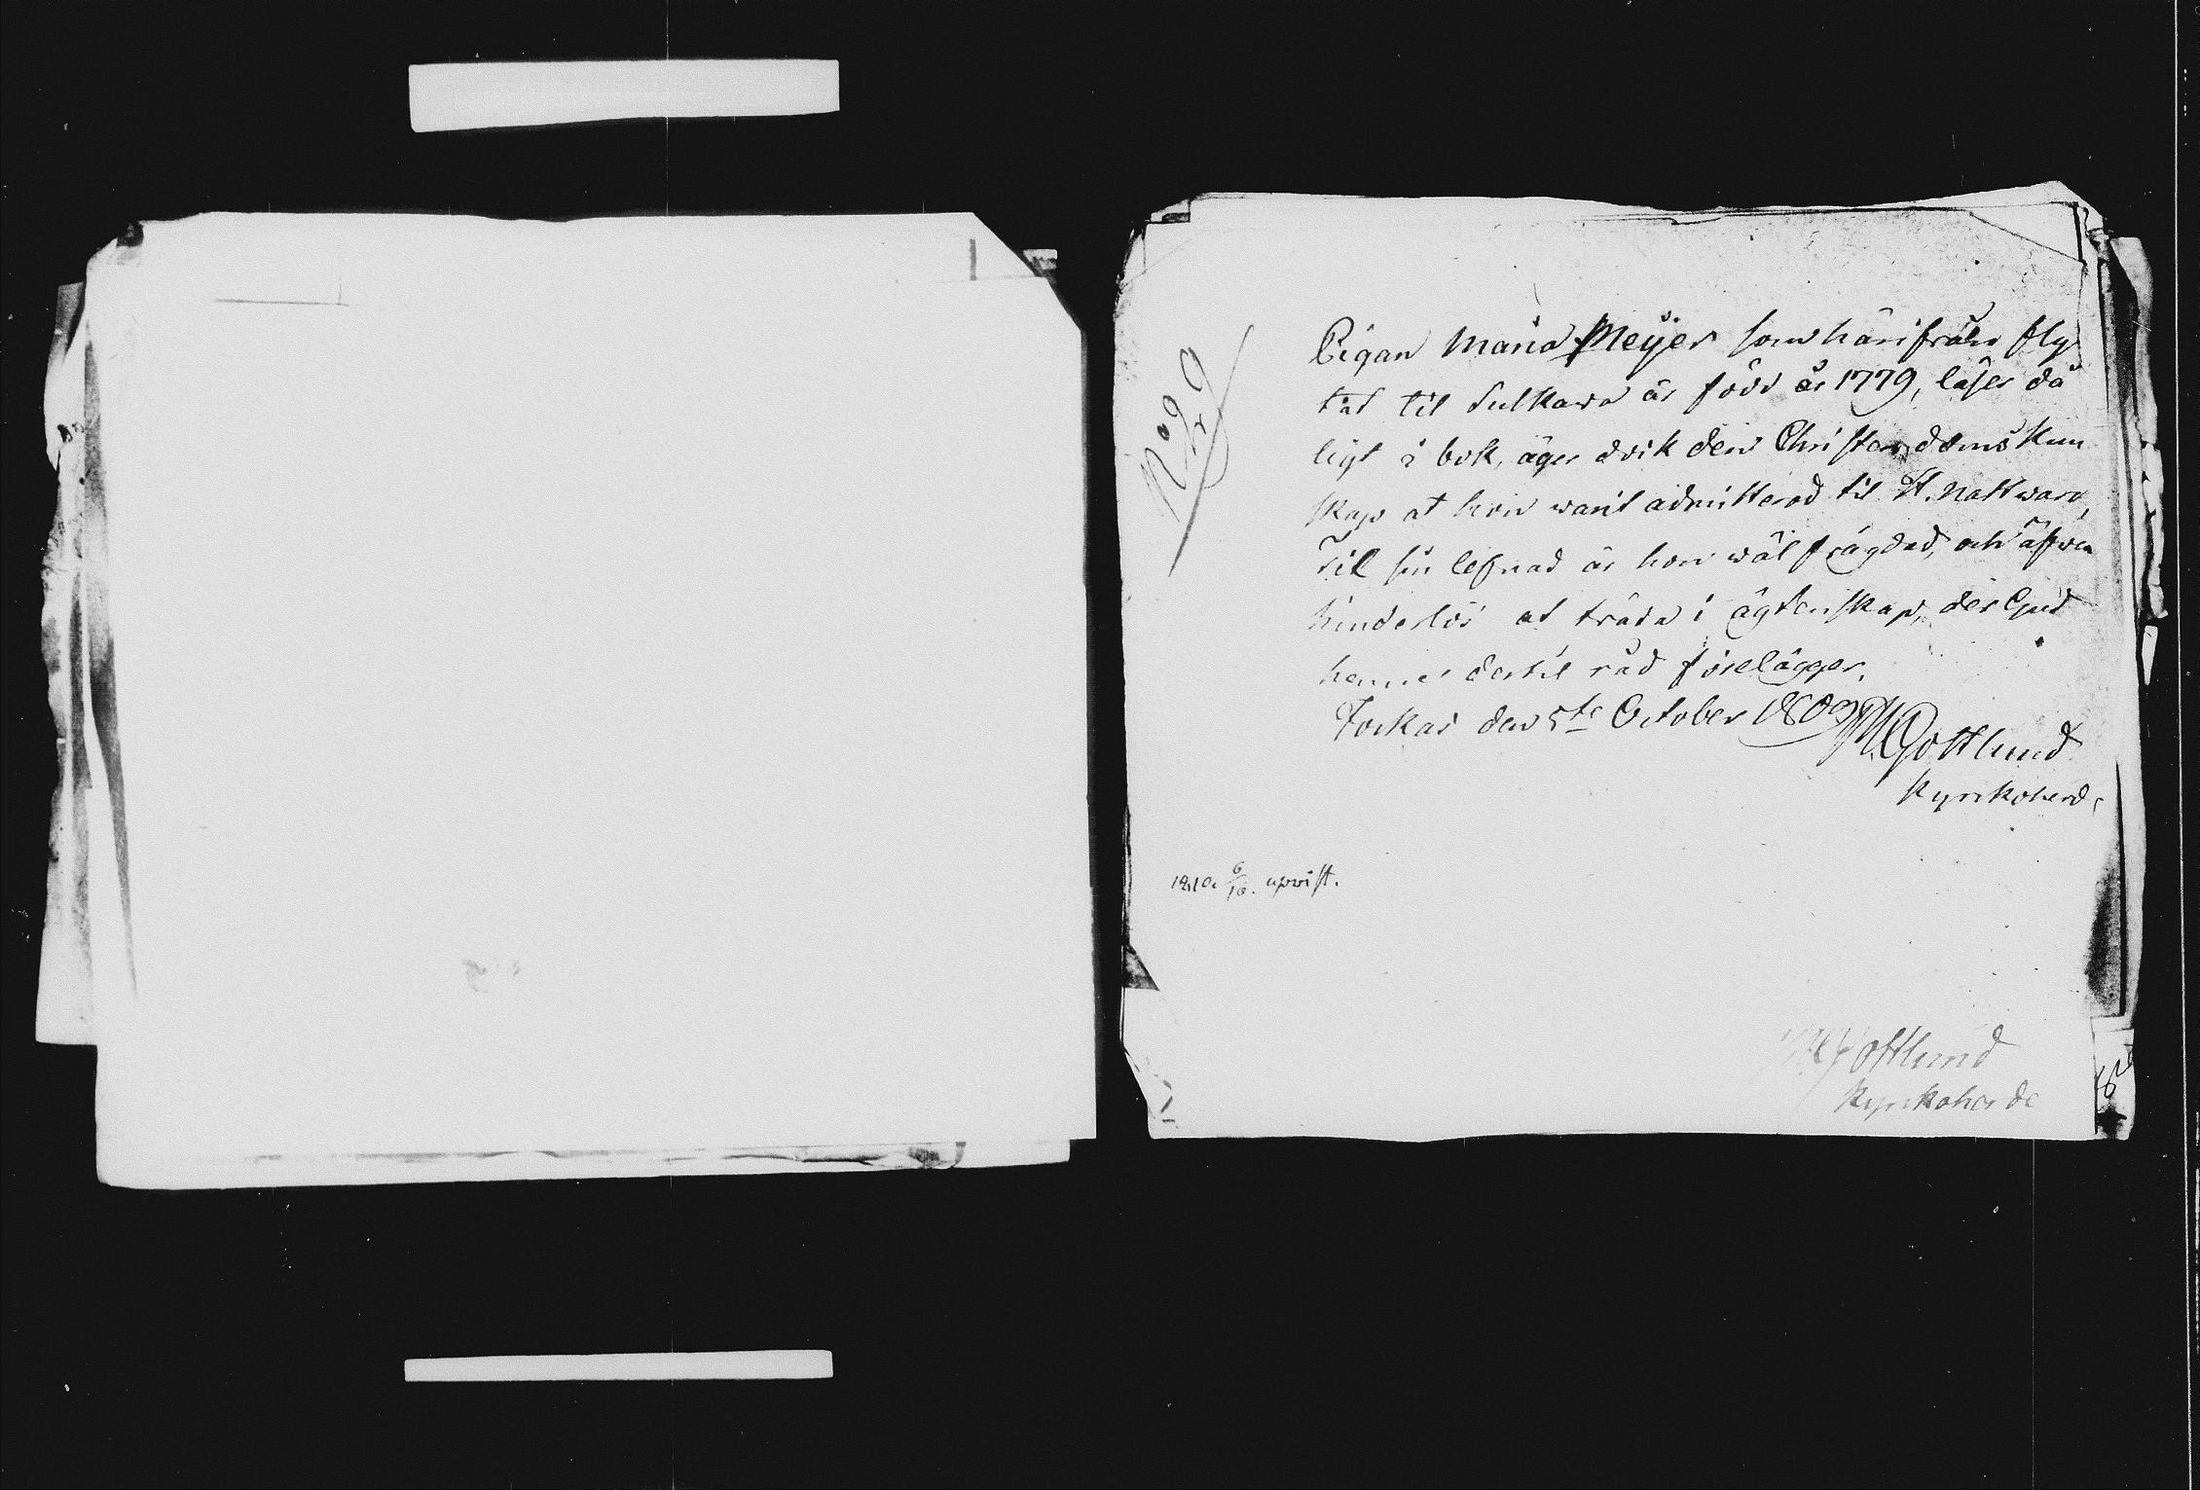 N:o 9
Pigan Maria Meÿer som härifrån fly
tat til Sulkava är född år 1779, läser då
ligt i bok, äger dock den Christendoms kun
skap at hon warit admitterad til H. Nattward,
Til sin lefnad är hon wäl frägdad, och äfwen
hinderlös at träda i ägtenskap, der Gud
henne dertil råd förelägger.
Jockas den 5te October 1809 M Gottlund
Kyrkoherde
1810. 6/10. upvist.
M Gottlund
Kyrkoherde